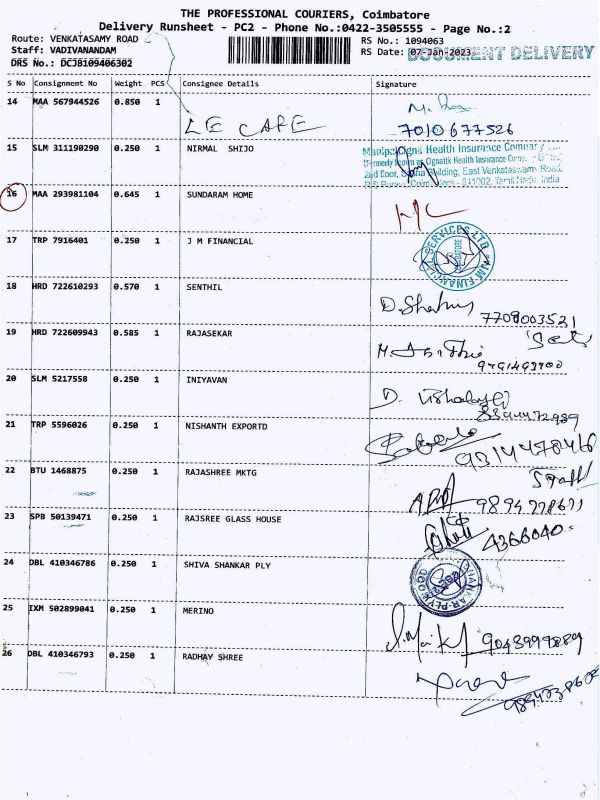 THE PROFESSIONAL COURIERS, Coimbatore
Delivery Runsheet - PC2 - Phone No.:0422-3505555 - Page No.:2
Route: VENKATASAMY ROAD
Staff: VADIVANANDAM
DRS No.: DCJB109406302
RS No.: 1094063
RS Date: 07-Jan-2023
DOCUMENT DELIVERY
S No Consignment No Weight PCS Consignee Details Signature
14 MAA 567944526 0.850 1
LE CAFE
7010677526
15 SLM 311190290 0.250 1 NIRMAL SHIJO
Health Insurance Company
Health Insurance
Building, East Venkataswamy Road,
Tamil Nadu, India
16 MAA 293981104 0.645 1 SUNDARAM HOME
17 TRP 7916401 0.250 1 J M FINANCIAL
JM FINANCIAL SERVICES LTD
18 HRD 722610293 0.570 1 SENTHIL
7708003521
19 HRD 722609943 0.585 1 RAJASEKAR
20 SLM 5217558 0.250 1 INIYAVAN
D.
21 TRP 5596026 0.250 1 NISHANTH EXPORTD
9314478416
22 BTU 1468875 0.250 1 RAJASHREE MKTG
Staff
23 SPB 50139471 0.250 1 RAJSREE GLASS HOUSE
4366040
24 DBL 410346786 0.250 1 SHIVA SHANKAR PLY
25 IXM 502899041 0.250 1 MERINO
9043999889
26 DBL 410346793 0.250 1 RADHAY SHREE